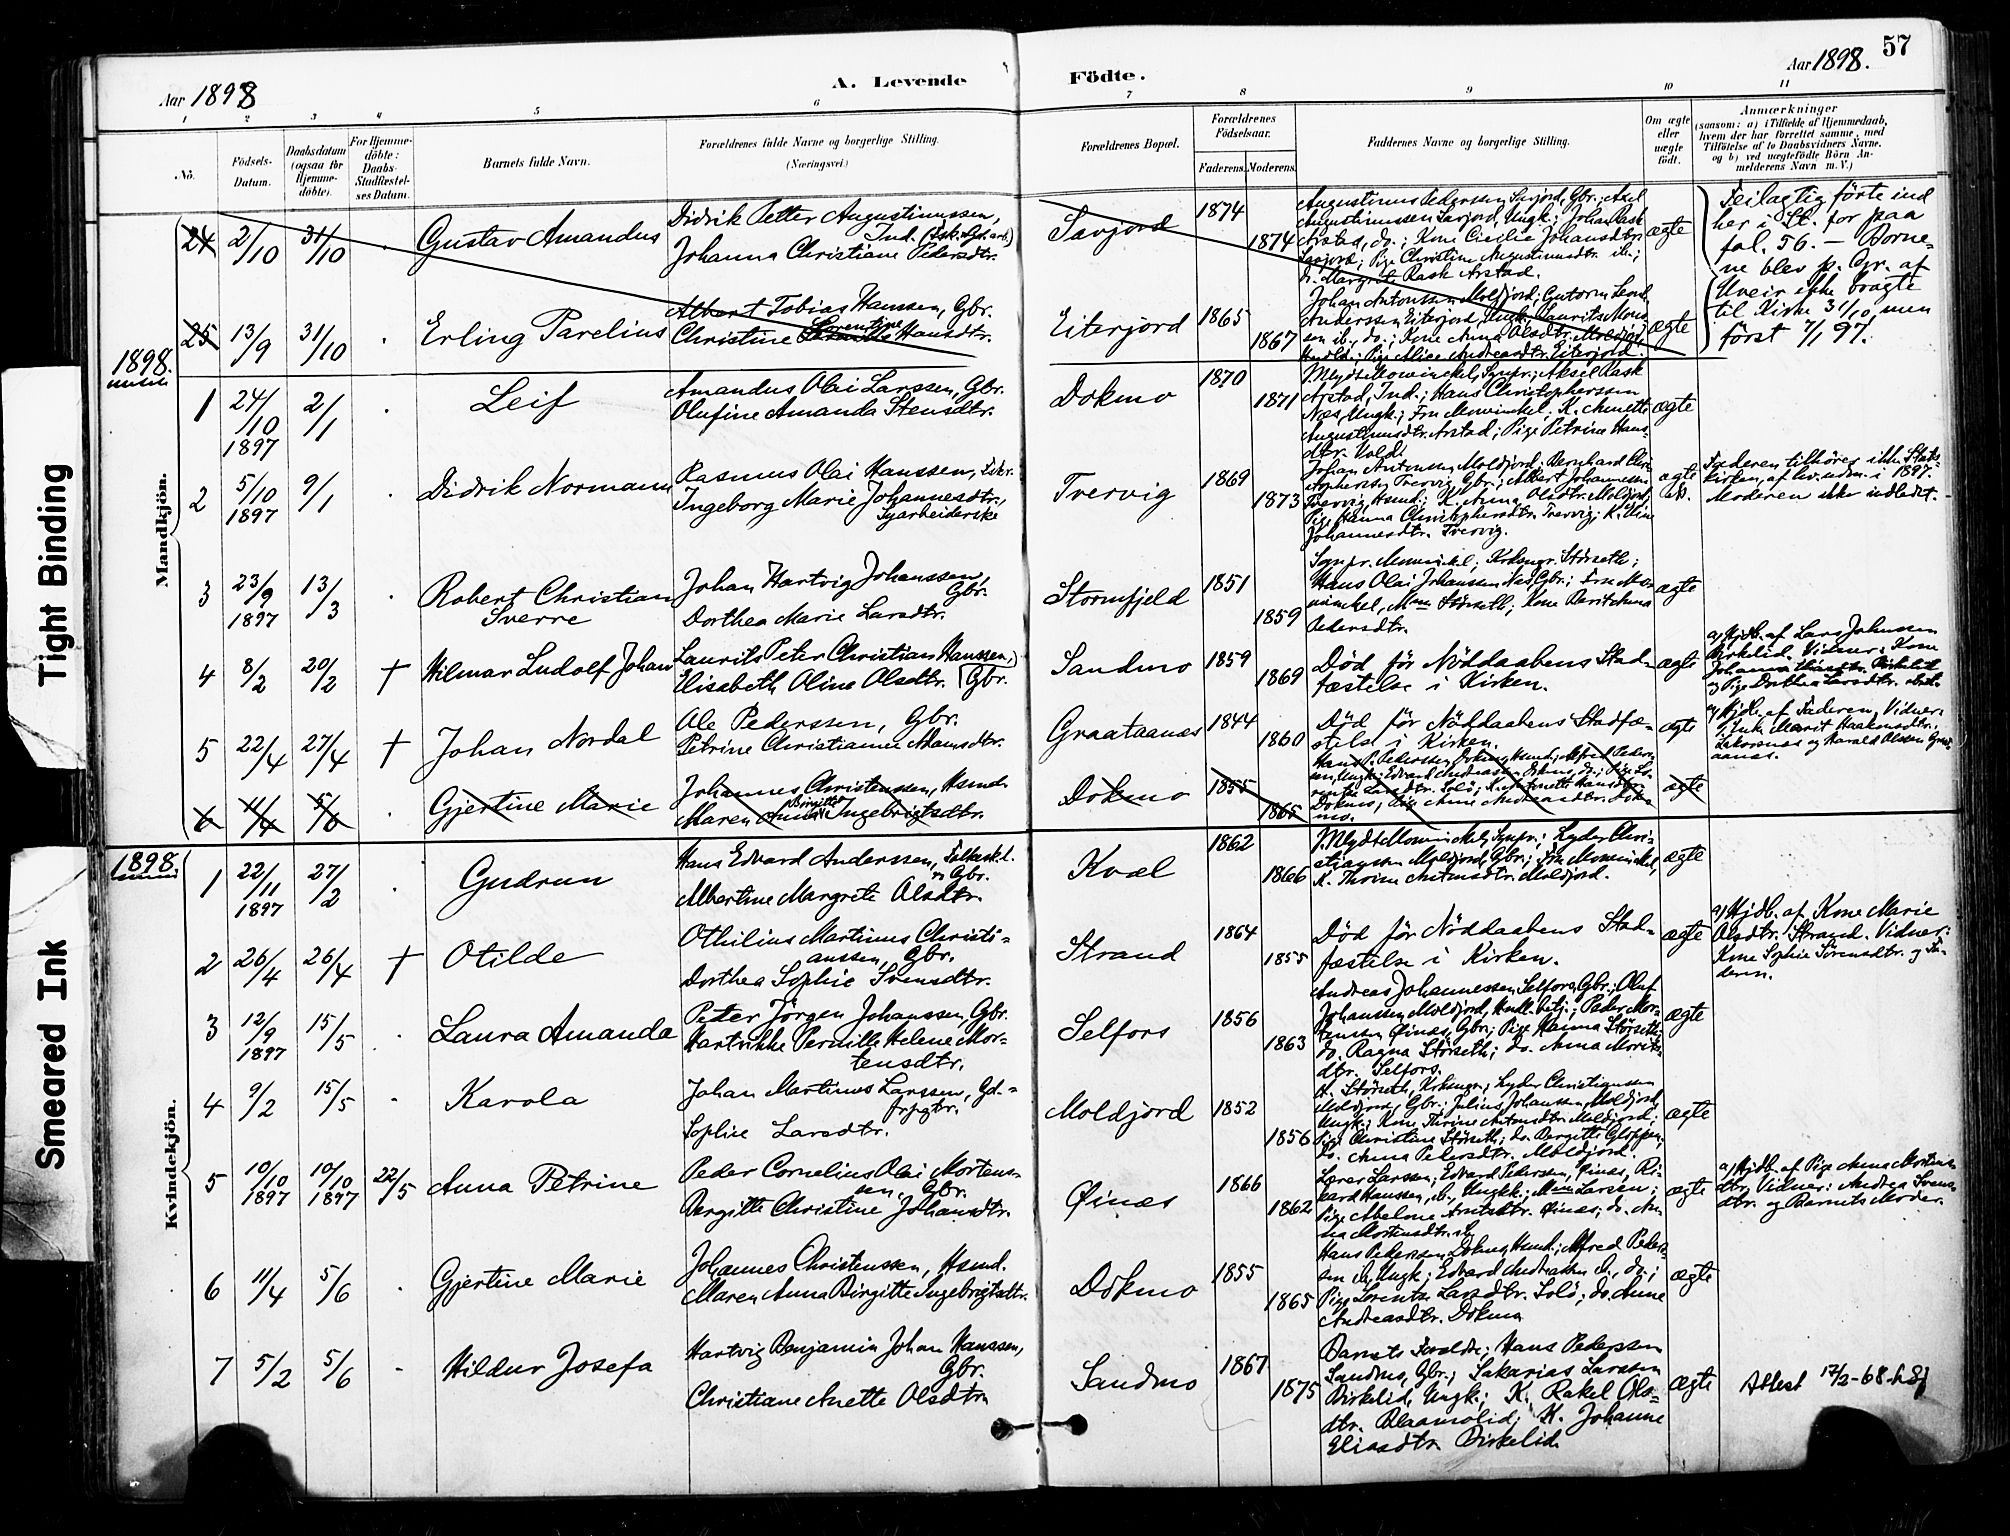 Tight Binding
Smeared Ink
57
Aar 1898
A. Levende
Födte.
Aar 1898.
1 2 3 4 5 6 7 8 9 10 11
No.
Födsels-
Datum.
Daabsdatum
(ogsaa for
Hjemme-
döbte).
For Hjemme-
döbte:
Daabs-
Stadfæstel-
ses Datum.
Barnets fulde Navn.
Forældrenes fulde Navne og borgerlige Stilling.
(Næringsvei)
Forældrenes Bopæl.
Forældrenes
Födselsaar.
Faderens. Moderens.
Faddernes Navne og borgerlige Stilling.
Om ægte
eller
uægte
födt.
Anmærkninger
(saasom: a) i Tilfælde af Hjemmedaab,
hvem der har forrettet samme, med
Tilföielse af to Daabsvidners Navne,
og b) ved uægtefödte Börn An-
melderens Navn m. V.)
Mandkjön.
24 2/10 31/10 Gustav Amandus
Didrik Petter Augustinussen,
Ind.
Johanna Christiane Pedersdtr.
Savjord 1874 1874
Augustinus Pederssen Savjord, Gbr.; Axel
Augustinussen Savjord, Ungk.; Johan Rask
Arstad, do.; Kone Cecilie Johansdtr.
Savjord; Pige Christine Augustinusdtr. ib.;
do. Margrete Rask Arstad.
ægte
Feilagtig förte ind
her i St. for paa
fol. 56. – Börne-
ne blev p. Gr. af
Uveir ikke bragte
til Kirke 31/10, men
först 7/1 97.
25 13/9 31/10 Erling Parelius
Albert Tobias Hanssen, Gbr.
Christine Lorentine Hansdtr.
Eiterjord 1865 1867
Johan Antonssen Moldjord; Guttorm
Anderssen Eiterjord, Ungk.; Laurits
Kone Anna Olsdtr. Moldjord,
Pige Alise Andreasdtr. Eiterjord.
ægte
1898.
1 24/10 1897 2/1 Leif
Amandus Olai Larssen, Gbr.
Olufine Amanda Stensdtr.
Dokmo 1870 1871
Sgnpr.; Aksel Rask
Arstad, Ind.; Hans Christopherssen
Næs, Ungk.; Fru Mowinckel. K. Anette
Augustinusdtr. Arstad; Pige Petrine Hans-
dtr. Vold.
ægte
2 5/10 1897 9/1 Didrik Normann
Rasmus Olai Hanssen, Fisker.
Ingeborg Marie Johannesdtr.,
Syarbeiderske
Tvervig 1869 1873
Johan Antonssen Moldjord; Bernhard Chri-
stophersen Tvervig, Gbr.; Albert Johannessen
Tvervig, Husmd.; K. Anna Olsdtr. Moldjord,
Pige Hanna Christophersdtr. Tvervig; K. Oline
Johannesdtr. Tvervig.
ægte
Faderen tilhörer ikke Stats-
kirken, af hv. udm. i 1897.
Moderen ikke udtedet.
3 23/9 1897 13/3 Robert Christian
Sverre
Johan Hartvig Johanssen,
Gbr.
Dorthea Marie Larsdtr.
Stormfjeld 1851 1859
Sognpr. Mowinckel; Kirkesgr. Störseth;
Hans Olai Johanssen Næs Gbr.; Fru Mo-
winckel, Mme Störseth; Kone Beritanna
Pedersdtr.
ægte
4 8/2 20/2 † Hilmar Ludolf Johan
Laurits Peter Christian Hanssen,
Elisabeth Oline Olsdtr. Gbr.
Sandmo 1859 1869
Död för Nöddaabens Stad-
fæstelse i Kirken.
ægte
a) Hjdb. af Lars Johnssen
Birkelid. Vidner: Kone
Johanna Hansdtr. Birkelid
og Pige Dorthea Larsdtr. ibid.
5 22/4 27/4 † Johan Nordal
Ole Pederssen, Gbr.
Petrine Christiane Hansdtr.
Graataanes 1844 1860
Död för Nöddaabens Stadfæ-
stelse i Kirken.
ægte
a) Hjdb. af Faderen, Vidner:
J. Enke Marit Haakensdtr.
Laksosnæs og Harald Olssen Graat-
aanes.
6 11/4 5/6 Gjertine Marie
Johannes Christenssen, Husmd.
Maren Anna Birgitte Ingebrigtsdtr.
Dokmo 1855 1865
Hans P. Pederssen Dokmo, Husmd.; Alfred Peders-
sen, Ungk.; Edvard Andreassen Dokmo, do.; Pige Lo-
rentse Larsdtr. Solö; K. Antonette Hansdtr.
Dokmo; Pige Anne Andreasdtr. Dok-
mo.
ægte
Kvindekjön.
1898.
1 22/11 1897 27/2 Gudrun
Hans Edvard Anderssen, Folkeskl.
og Gbr.
Albertine Margrete Olsdtr.
Kvæl 1862 1866
Sgnpr.; Lyder Chri-
stianssen Moldjord, Gbr.; Fru Mowinckel,
K. Thrine Antonsdtr. Moldjord.
ægte
2 26/4 26/4 † Otilde
Othilius Martinus Christi-
anssen, Gbr.
Dorthea Sophie Svensdtr.
Strand 1864 1855
Död för Nöddaabens Stad-
fæstelse i Kirken.
ægte
a) Hjdb. af Kone Marie
Olsdtr. Strand. Vidner:
Kone Sophie Sörensdtr. og Fa-
deren.
3 12/9 1897 15/5 Laura Amanda
Peter Jörgen Johanssen, Gbr.
Hartvikke Pernille Helene Mor-
tensdtr.
Selfors 1856 1863
Andreas Johannessen Selfors, Gbr.; Oluf
Johanssen Moldjord, Peder Mor-
tenssen Øinæs, Gbr.; Pige Hanna Störseth;
do. Ragna Störseth; do. Anna Morits-
dtr. Selfors.
ægte
4 9/2 15/5 Karola
Johan Martinus Larssen, Gd-
Sophie Larsdtr.
Moldjord 1852 1856
H. Störseth, Kirkesgr.; Lyder Christianssen
Moldjord, Gbr.; Julius Johanssen Moldjord,
Ungk.; Kone Thrine Antonsdtr. Moldjord;
Pige Christine Störseth; do. Bergitte Gloppen,
do. Anna Petersdtr. Moldjord.
ægte
5 10/10 1897 10/10 1897 22/5 Anna Petrine
Peder Cornelius Olai Mortens-
sen, Gbr.
Bergitte Christine Johansdtr.
Øinæs 1866 1862
Larssen; Edvard Pederssen, Øinæs, Ri-
kard Hanssen, ib., Ungkk.; Mme Larsen;
Pige Abelone Arntsdtr. Øinæs; do. An-
na Mortensdtr. ib.
ægte
a) Hjdb. af Pige Anna Mortens-
dtr., Vidner: Andrea Svens-
dtr. og Barnets Moder.
6 11/4 5/6 Gjertine Marie
Johannes Christenssen, Husmd.
Maren Anna Birgitte Ingebrigtsdtr.
Dokmo 1855 1865
Hans Pederssen Dokmo, Husmd.; Alfred Peders-
sen ib., Ungk.; Edvard Andreassen ib., do.;
Pige Lorentse Larsdtr. Solö; do. Anne
Andreasdtr. Dokmo
ægte
7 5/2 5/6 Hildur Josefa
Hartvig Benjamin Johan Hanssen,
Gbr.
Christiane Anette Olsdtr.
Sandmo 1867 1875
Barnets Forældre; Hans Pederssen
Sandmo, Gbr.; Sakarias Larssen
Birkelid, Ungk.; K. Rakel Ols-
dtr. Blaamolid; K. Johanne
Eliasdtr. Birkelid.
ægte
Attest 17/2-68.